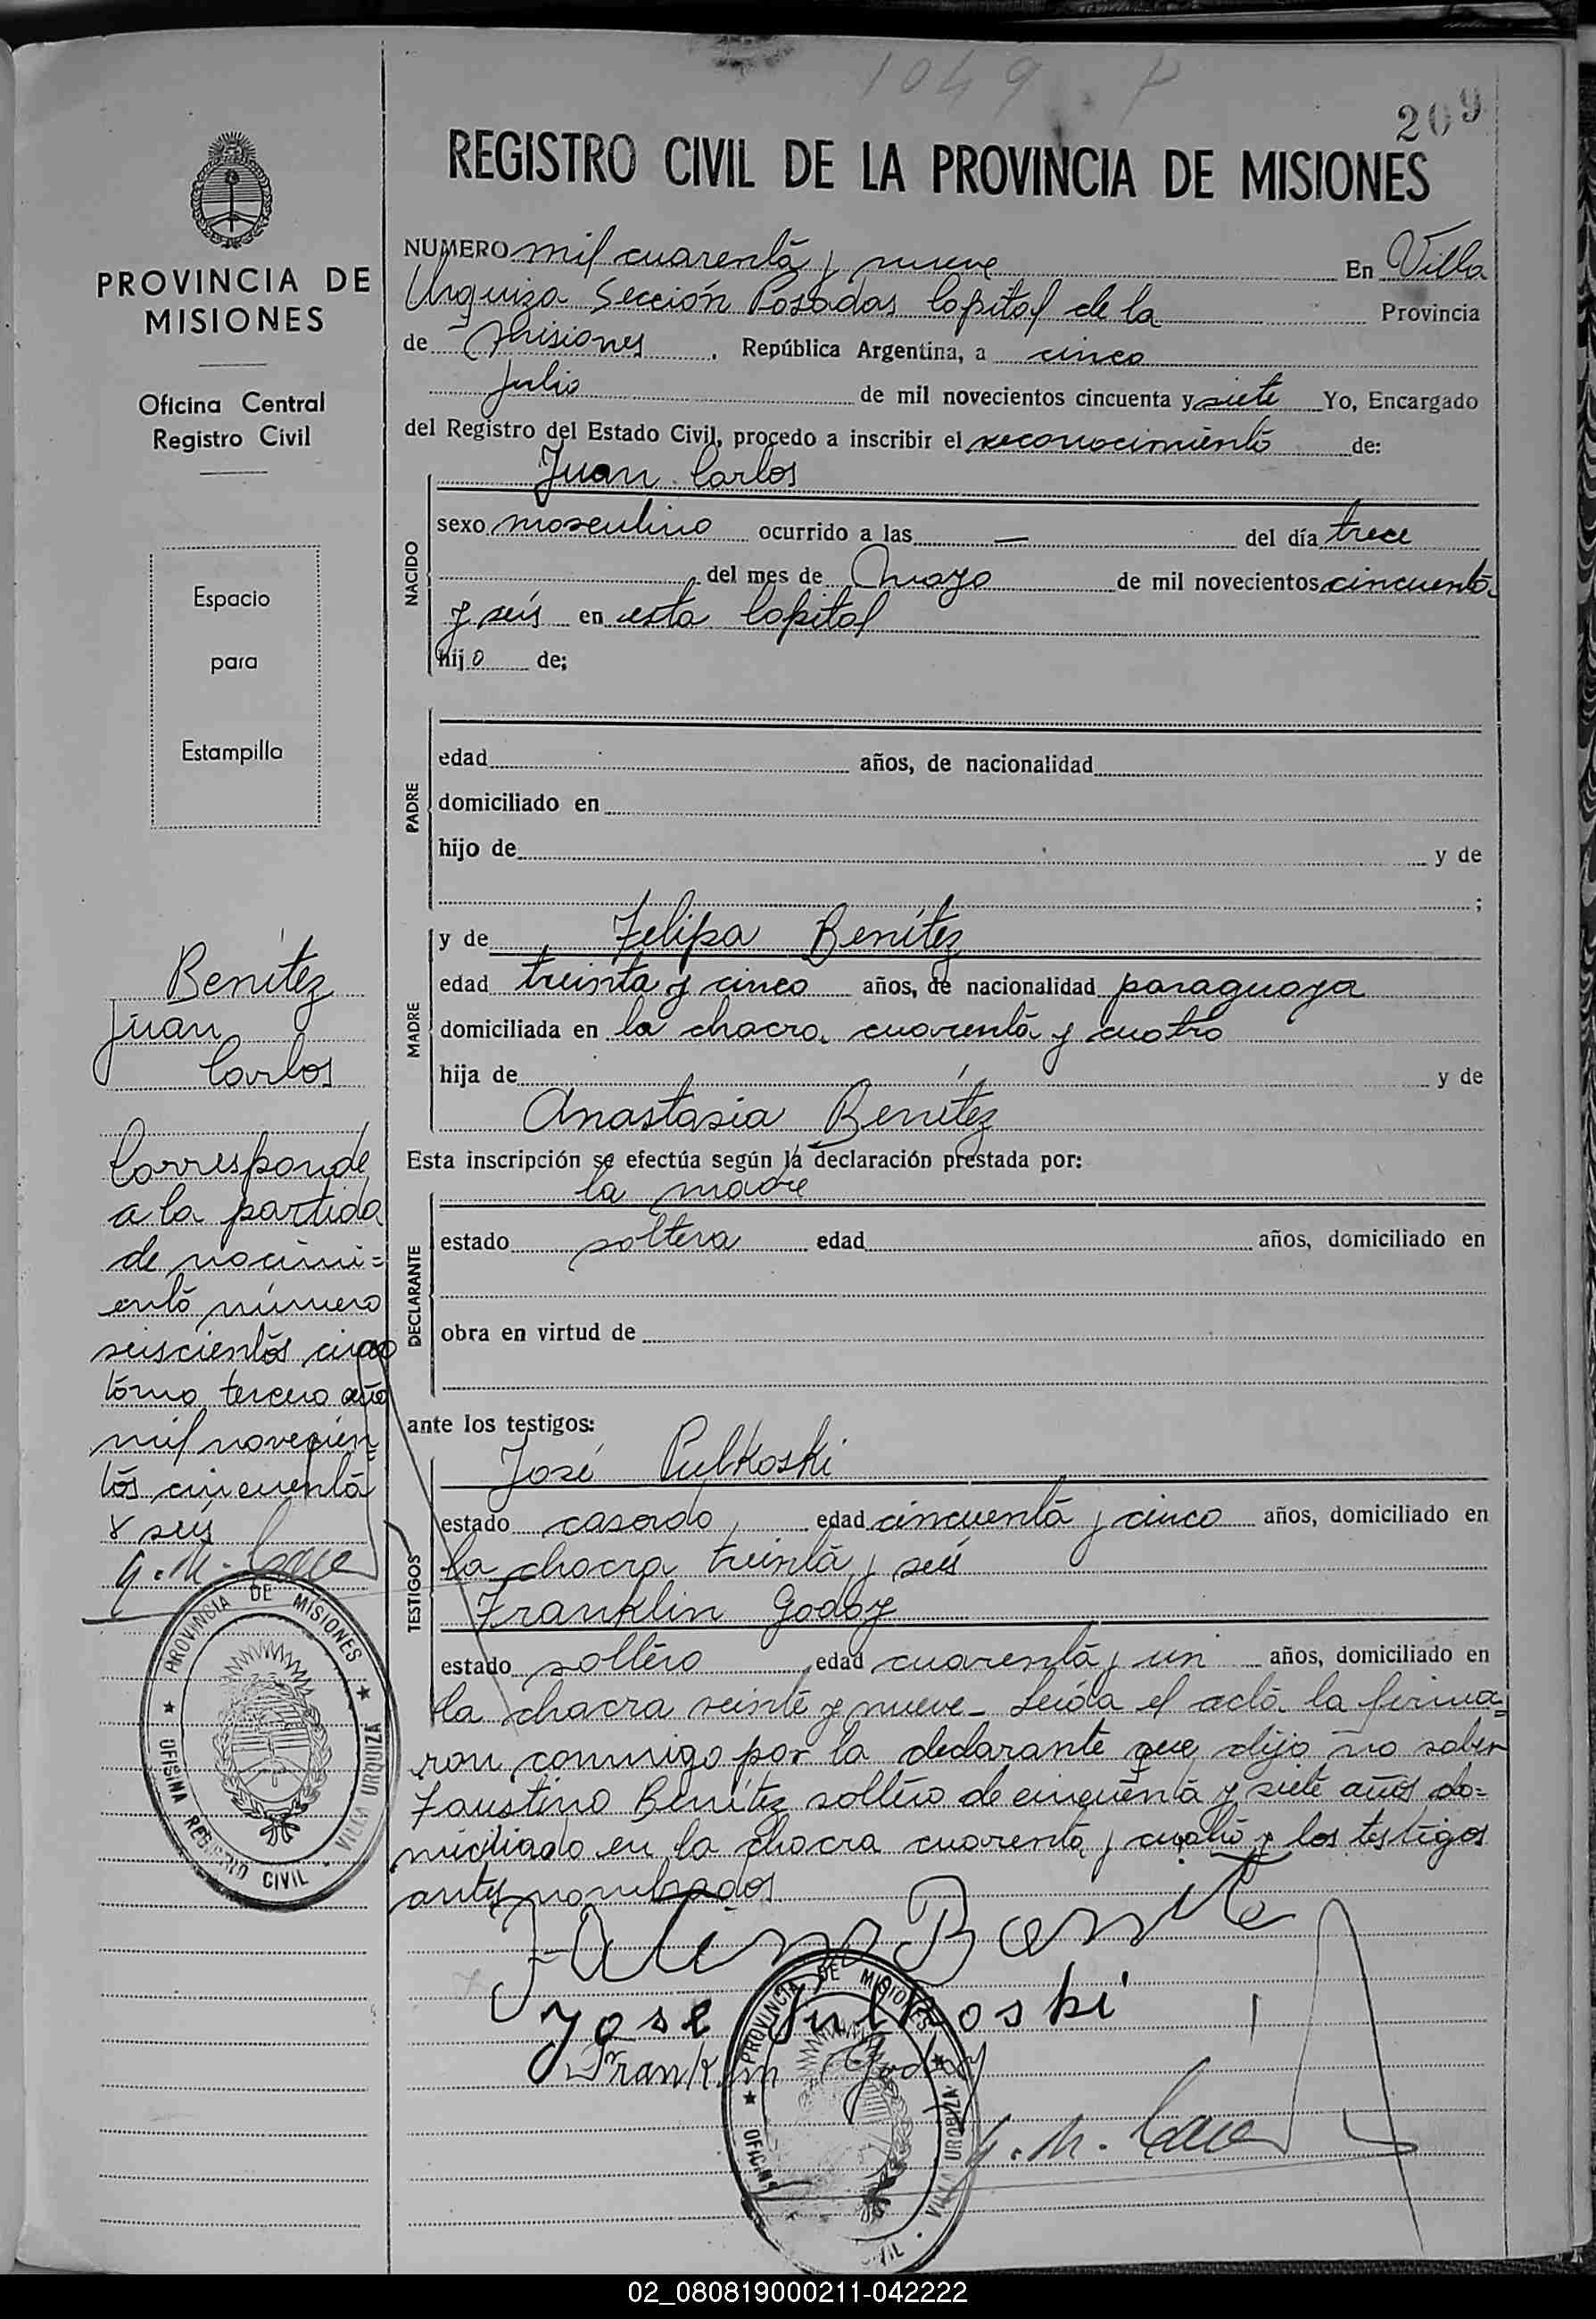 1049.P
209
REGISTRO CIVIL DE LA PROVINCIA DE MISIONES
PROVINCIA DE
MISIONES
Oficina Central
Registro Civil
Espacio
para
Estampilla
Benítez
Juan
Carlos
Corresponde
a la partida
de nacimi=
ento número
seiscientos cinco
tomo tercero año
mil novecien=
tos cincuenta
y seis
NUMERO mil cuarenta y nueve En Villa
Urquiza Sección Posadas Capital de la Provincia
de Misiones. República Argentina, a cinco
Julio de mil novecientos cincuenta y siete Yo, Encargado
del Registro del Estado Civil, procedo a inscribir el reconocimiento de:
NACIDO
Juan Carlos
sexo masculino ocurrido a las — del día trece
del mes de Mayo de mil novecientos cincuenta
y seis en esta Capital
hijo de;
PADRE
edad años, de nacionalidad
domiciliado en
hijo de y de
;
MADRE
y de Felipa Benítez
edad treinta y cinco años, de nacionalidad paraguaya
domiciliada en la chacra cuarenta y cuatro
hija de y de
Anastasia Benítez
Esta inscripción se efectúa según la declaración prestada por:
DECLARANTE
la madre
estado soltera edad años, domiciliado en
obra en virtud de
ante los testigos:
TESTIGOS
José Pulkoski
estado casado edad cincuenta y cinco años, domiciliado en
la chacra treinta y seis
Franklin Godoy
estado soltero edad cuarenta y un años, domiciliado en
la chacra veinte y nueve - Leída el acta la firma=
ron conmigo por la declarante que dijo no saber
Faustino Benítez soltero de cincuenta y siete años do=
miciliado en la chacra cuarenta y cuatro y los testigos
antes nombrados
Jose Pulkoski
Franklin Godoy
PROVINCIA DE MISIONES
OFICINA REGISTRO CIVIL · VILLA URQUIZA
PROVINCIA DE MISIONES
OFICINA CIVIL · VILLA URQUIZA
02_080819000211-042222